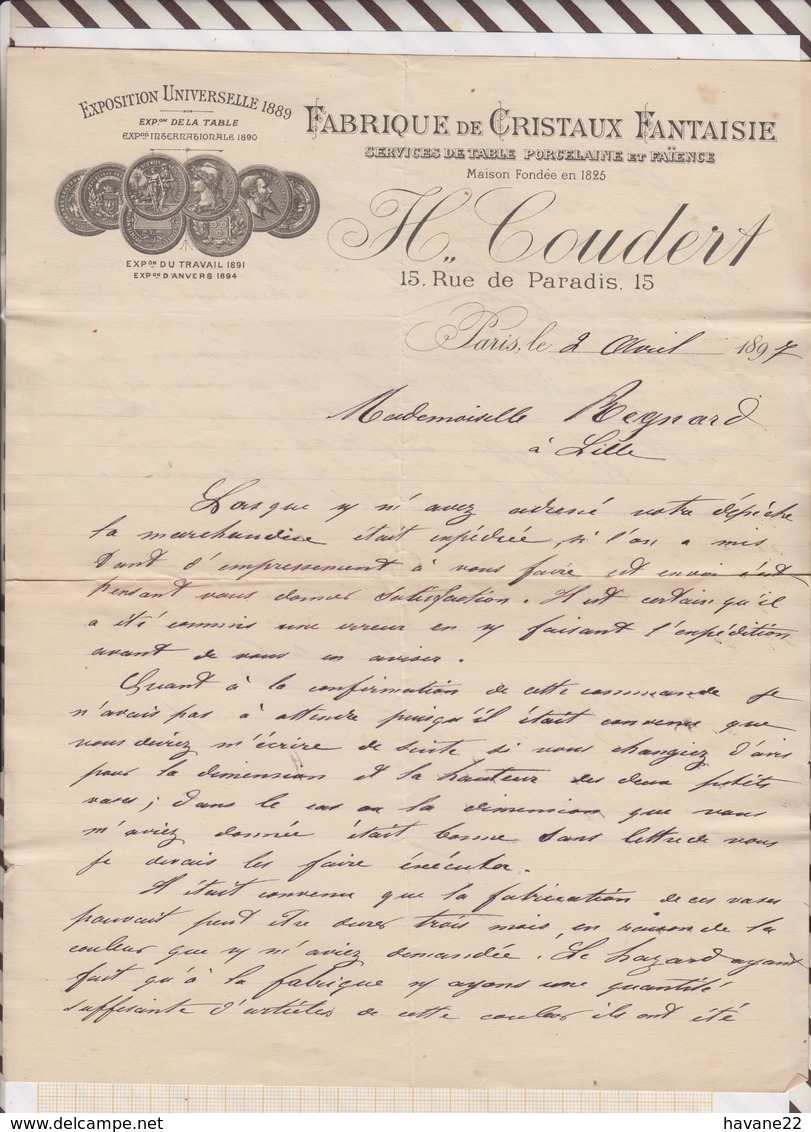 EXPOSITION UNIVERSELLE 1889
EXP.on DE LA TABLE
EXP.on INTERNATIONALE 1890
EXP.on DU TRAVAIL 1891
EXP.on D'ANVERS 1894
FABRIQUE DE CRISTAUX FANTAISIE
SERVICES DE TABLE PORCELAINE ET FAÏENCE
Maison Fondée en 1825
H. Coudert
15, Rue de Paradis, 15
Paris, le 2 Avril 1897
Mademoiselle Regnard
à Lille
Lorsque v m'avez adressé votre dépêche
la marchandise était expédiée, si l'on a mis
tant d'empressement à vous faire cet envoi c'est
pensant vous donner satisfaction. Il est certain qu'il
a été commis une erreur en v faisant l'expédition
avant de vous en aviser.
Quant à la confirmation de cette commande je
n'avais pas à attendre puisqu'il était convenu que
vous deviez m'écrire de suite si vous changiez d'avis
pour la dimension et la hauteur des deux petits
vases; dans le cas ou la dimension que vous
m'aviez donnée était bonne sans lettre de vous
je devais les faire exécuter.
Il était convenu que la fabrication de ces vases
pouvait peut être durer trois mois, en raison de la
couleur que v m'aviez demandée. Le hazard ayant
fait qu'à la fabrique v ayons une quantité
suffisante d'articles de cette couleur ils ont été
havane22